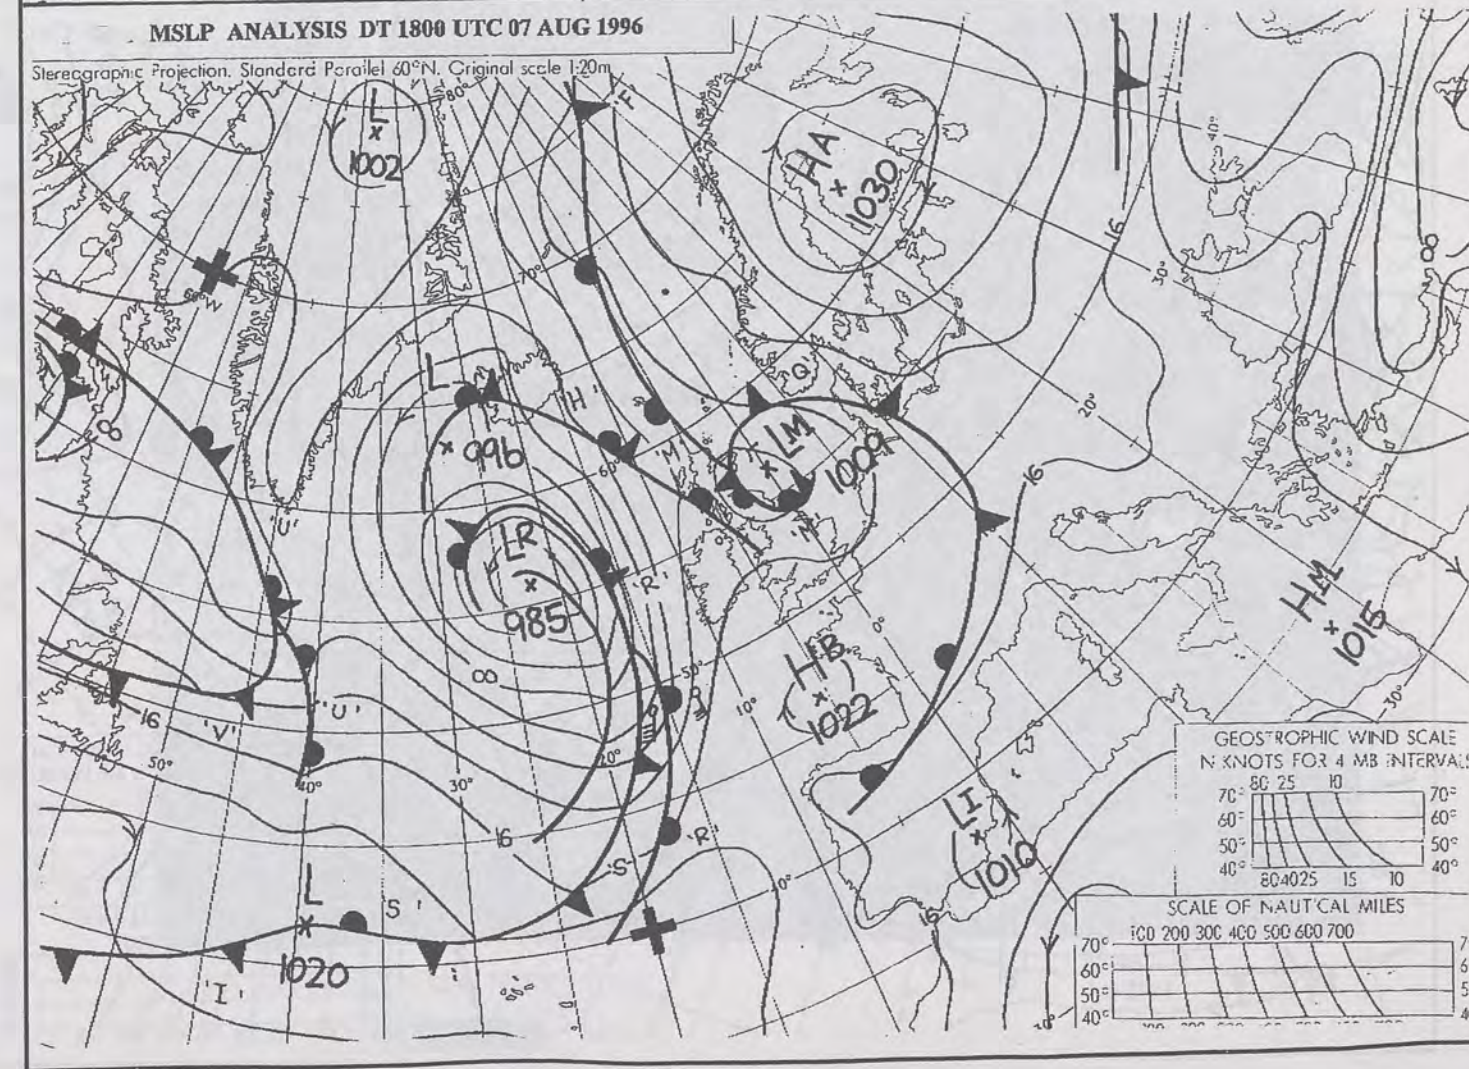 MSLP ANALYSIS DT 1800 UTC 07 AUG 1996
Stereographic Projection. Standard Parallel 60°N. Original scale 1:20m
L
1002
80°
'F'
HA
1030
40°
16
8
30°
60°W
70°
L
996
'H'
'Q'
20°
8
60°
'M'
LM
1009
16
'U'
LR
985
'R'
'N'
HM
1015
0°
50°
HB
1022
10°
30°
8
16
'V'
'U'
50°
40°
30°
20°
16
'S'
'R'
10°
LI
1010
16
L
1020
'S'
'I'
GEOSTROPHIC WIND SCALE
IN KNOTS FOR 4 MB INTERVALS
80 25 10
70° 70°
60° 60°
50° 50°
40° 40°
80 40 25 15 10
SCALE OF NAUTICAL MILES
100 200 300 400 500 600 700
70°
60°
50°
40°